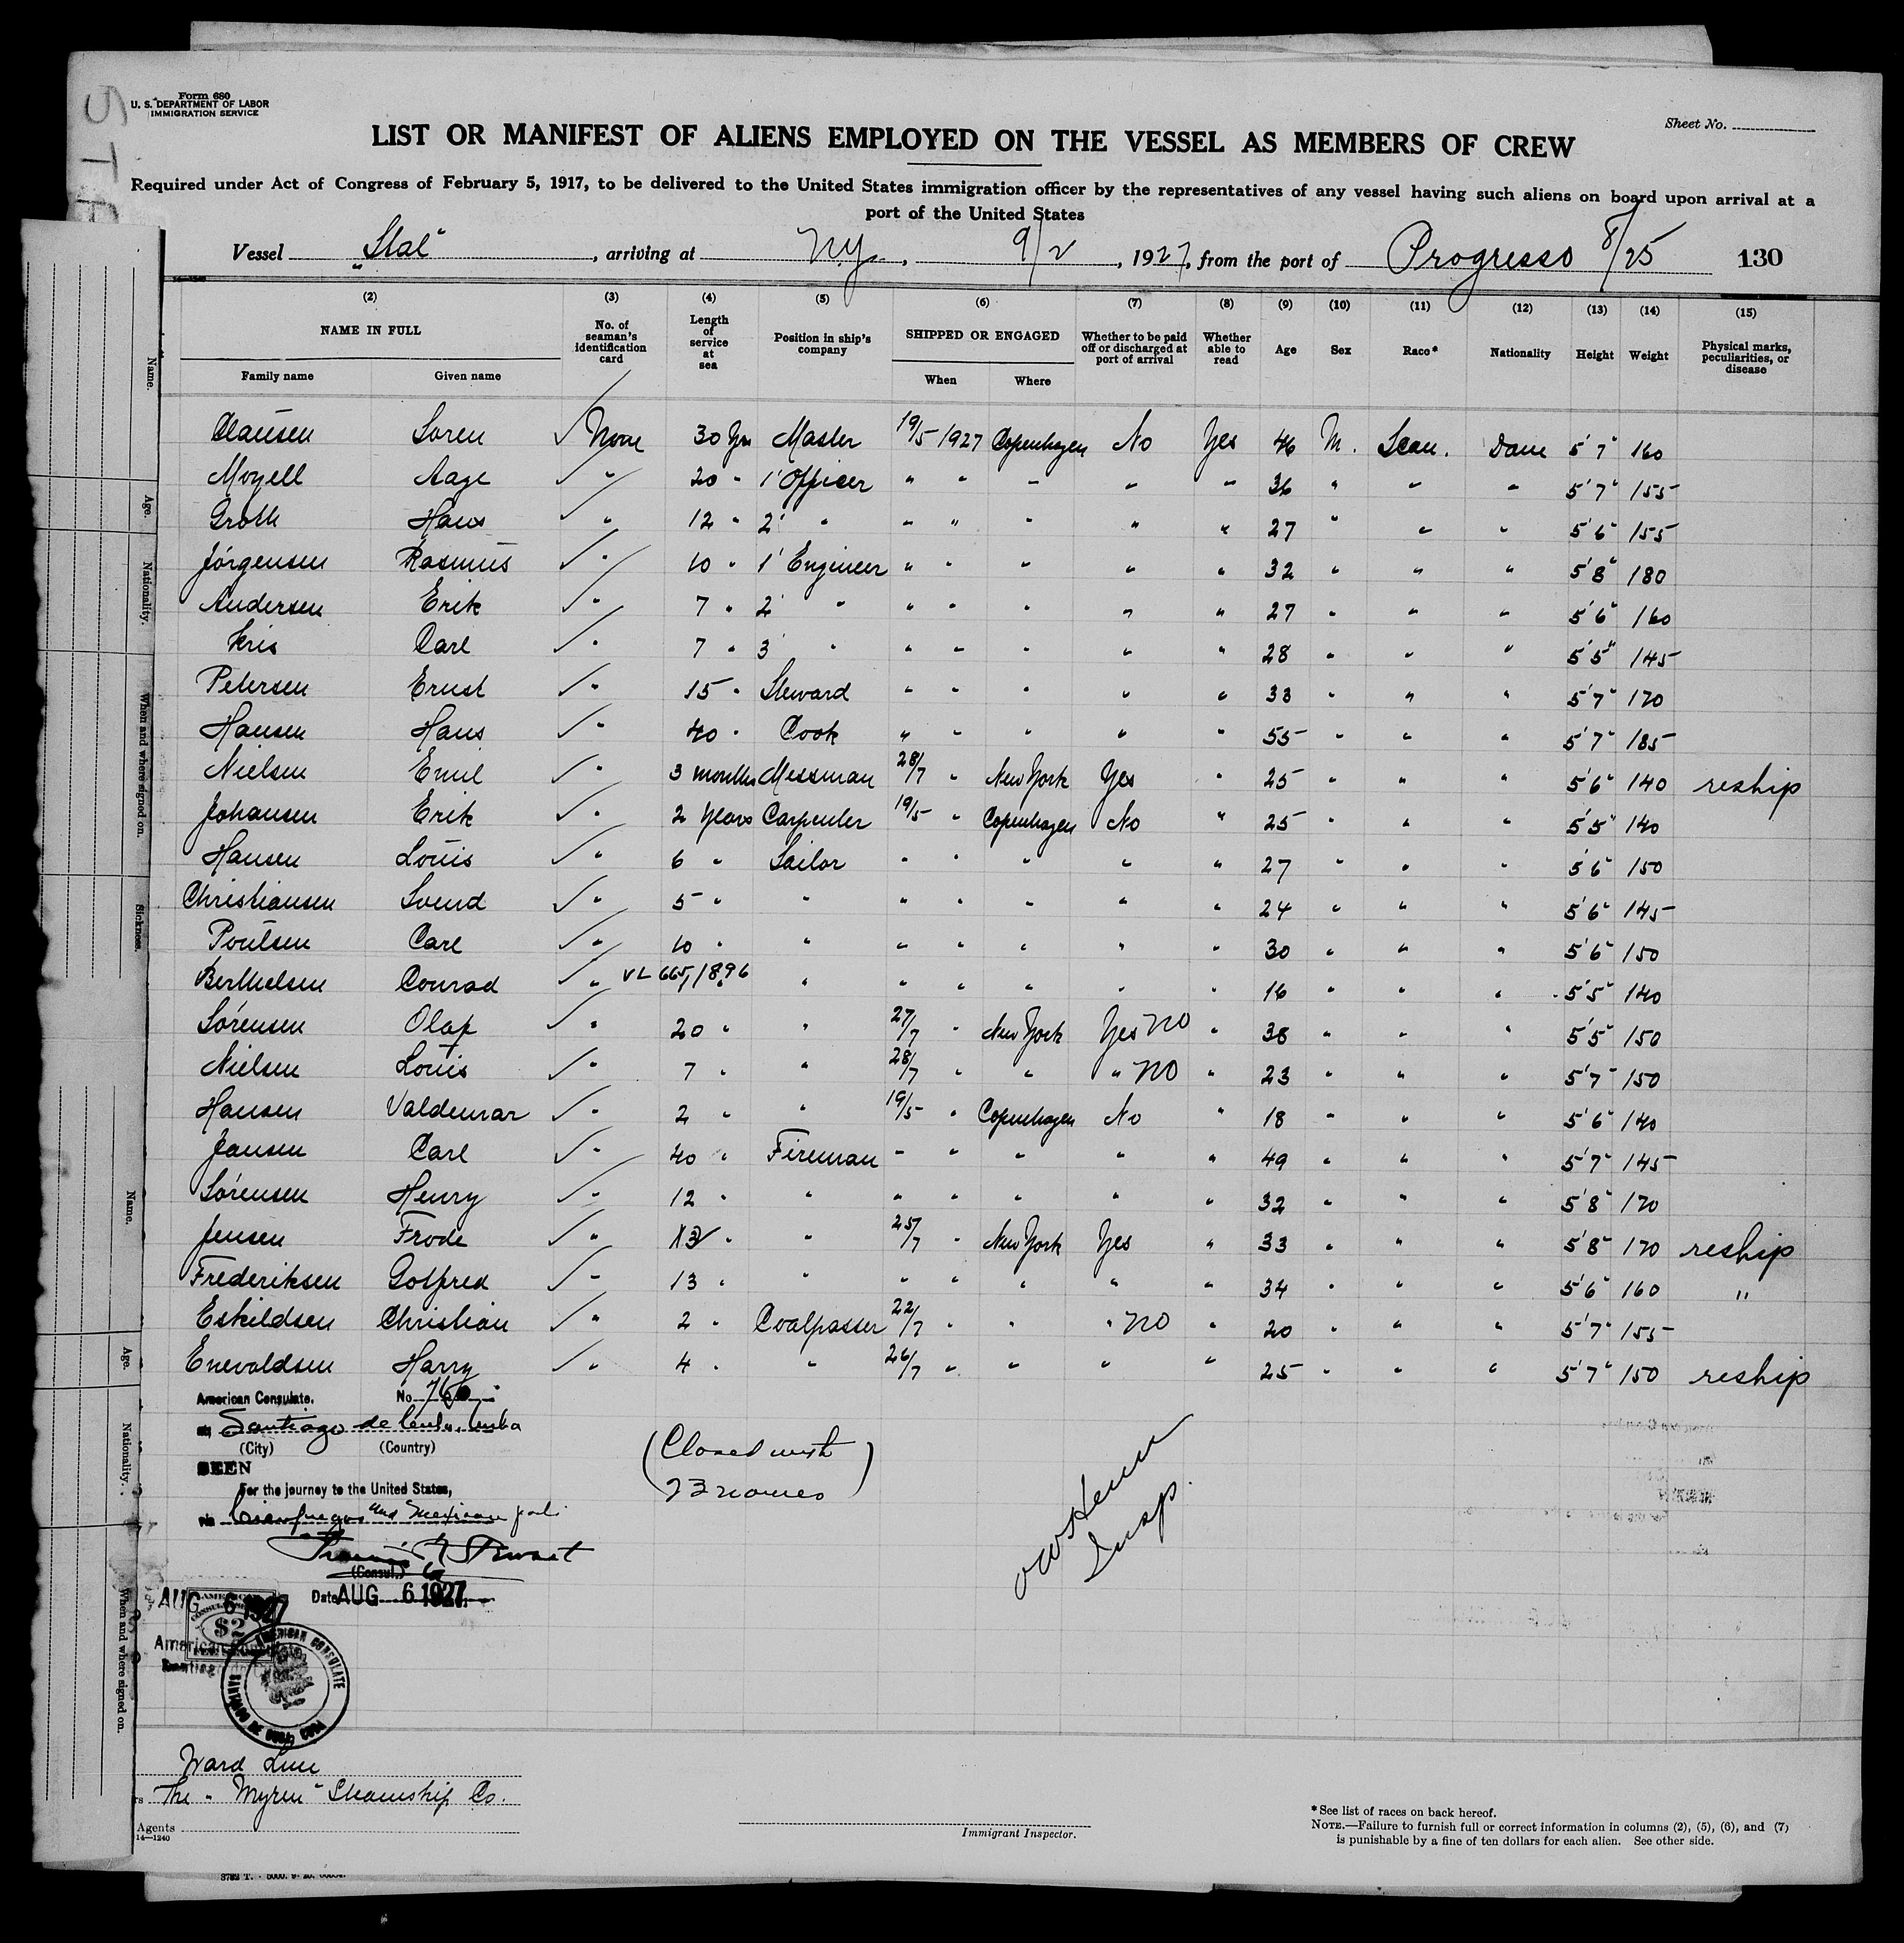 Form 680
U. S. DEPARTMENT OF LABOR
IMMIGRATION SERVICE
Sheet No.
LIST OR MANIFEST OF ALIENS EMPLOYED ON THE VESSEL AS MEMBERS OF CREW
Required under Act of Congress of February 5, 1917, to be delivered to the United States immigration officer by the representatives of any vessel having such aliens on board upon arrival at a
port of the United States
Vessel „Stal“, arriving at N.Y., 9/2, 1927, from the port of Progresso 8/25 130
(2) (3) (4) (5) (6) (7) (8) (9) (10) (11) (12) (13) (14) (15)
NAME IN FULL No. of seaman's identification card Length of service at sea Position in ship's company SHIPPED OR ENGAGED Whether to be paid off or discharged at port of arrival Whether able to read Age Sex Race* Nationality Height Weight Physical marks, peculiarities, or disease
Family name Given name When Where
Clausen Soren None 30 Yrs Master 19/5 1927 Copenhagen No Yes 46 M. Scan. Dane 5'7" 160
Moyell Aage " 20 " 1' Officer " " " " " 36 " " " 5'7" 155
Groth Hans " 12 " 2' " " " " " " 27 " " " 5'6" 155
Jörgensen Rasmus " 10 " 1' Engineer " " " " " 32 " " " 5'8" 180
Andersen Erik " 7 " 2' " " " " " " 27 " " " 5'6" 160
Kris Carl " 7 " 3' " " " " " " 28 " " " 5'5" 145
Petersen Ernst " 15 " Steward " " " " " 33 " " " 5'7" 170
Hansen Hans " 40 " Cook " " " " " 55 " " " 5'7" 185
Nielsen Emil " 3 months Messman 28/7 " New York Yes " 25 " " " 5'6" 140 reship
Johansen Erik " 2 Years Carpenter 19/5 " Copenhagen No " 25 " " " 5'5" 140
Hansen Louis " 6 " Sailor " " " " " 27 " " " 5'6" 150
Christiansen Svend " 5 " " " " " " " 24 " " " 5'6" 145
Poulsen Carl " 10 " " " " " " " 30 " " " 5'6" 150
Berthelsen Conrad " VL 665/1896 " " " " " " 16 " " " 5'5" 140
Sörensen Olaf " 20 " " 27/7 " New York Yes NO " 38 " " " 5'5" 150
Nielsen Louis " 7 " " 28/7 " " " NO " 23 " " " 5'7" 150
Hansen Valdemar " 2 " " 19/5 " Copenhagen No " 18 " " " 5'6" 140
Jansen Carl " 40 " Fireman " " " " " 49 " " " 5'7" 145
Sörensen Henry " 12 " " " " " " " 32 " " " 5'8" 170
Jensen Frode " 13 " " 25/7 " New York Yes " 33 " " " 5'8" 170 reship
Frederiksen Gotfred " 13 " " " " " " " 34 " " " 5'6" 160 "
Eskildsen Christian " 2 " Coalpasser 22/7 " " " NO " 20 " " " 5'7" 155
Enevoldsen Harry " 4 " " 26/7 " " " " 25 " " " 5'7" 150 reship
American Consulate. No. 760
at Santiago de Cuba, Cuba
(City) (Country)
SEEN
For the journey to the United States,
via Cienfuegos and Mexican port
Stewart
(Consul.)
Date AUG 6 1927
AUG 6 1927
$2
AMERICAN CONSULATE
SANTIAGO DE CUBA CUBA
(Closed with
23 names)
Insp.
Ward Line
The „Myren“ Steamship Co.
Agents
14—1240
Immigrant Inspector.
*See list of races on back hereof.
NOTE.—Failure to furnish full or correct information in columns (2), (5), (6), and (7)
is punishable by a fine of ten dollars for each alien. See other side.
Name.
Age.
Nationality.
When and where signed on.
Sickness.
Name.
Age.
Nationality.
When and where signed on.